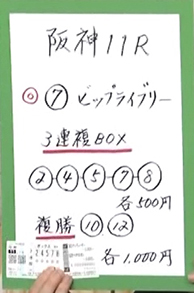 阪神11R
◎⑦ビップライブリー
3連複BOX
②-④-⑤-⑦-⑧
各500円
複勝⑩⑫
各1,000円